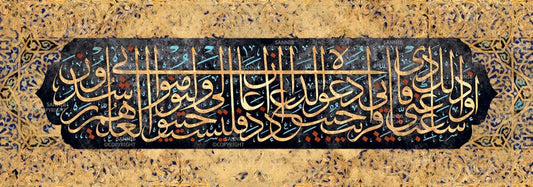 وإذا سألك عبادي عني فإني قريب أجيب دعوة الداع إذا دعان فليستجيبوا لي وليؤمنوا بي لعلهم يرشدون
SANNIS
SANNIS
©COPYRIGHT
©COPYRIGHT